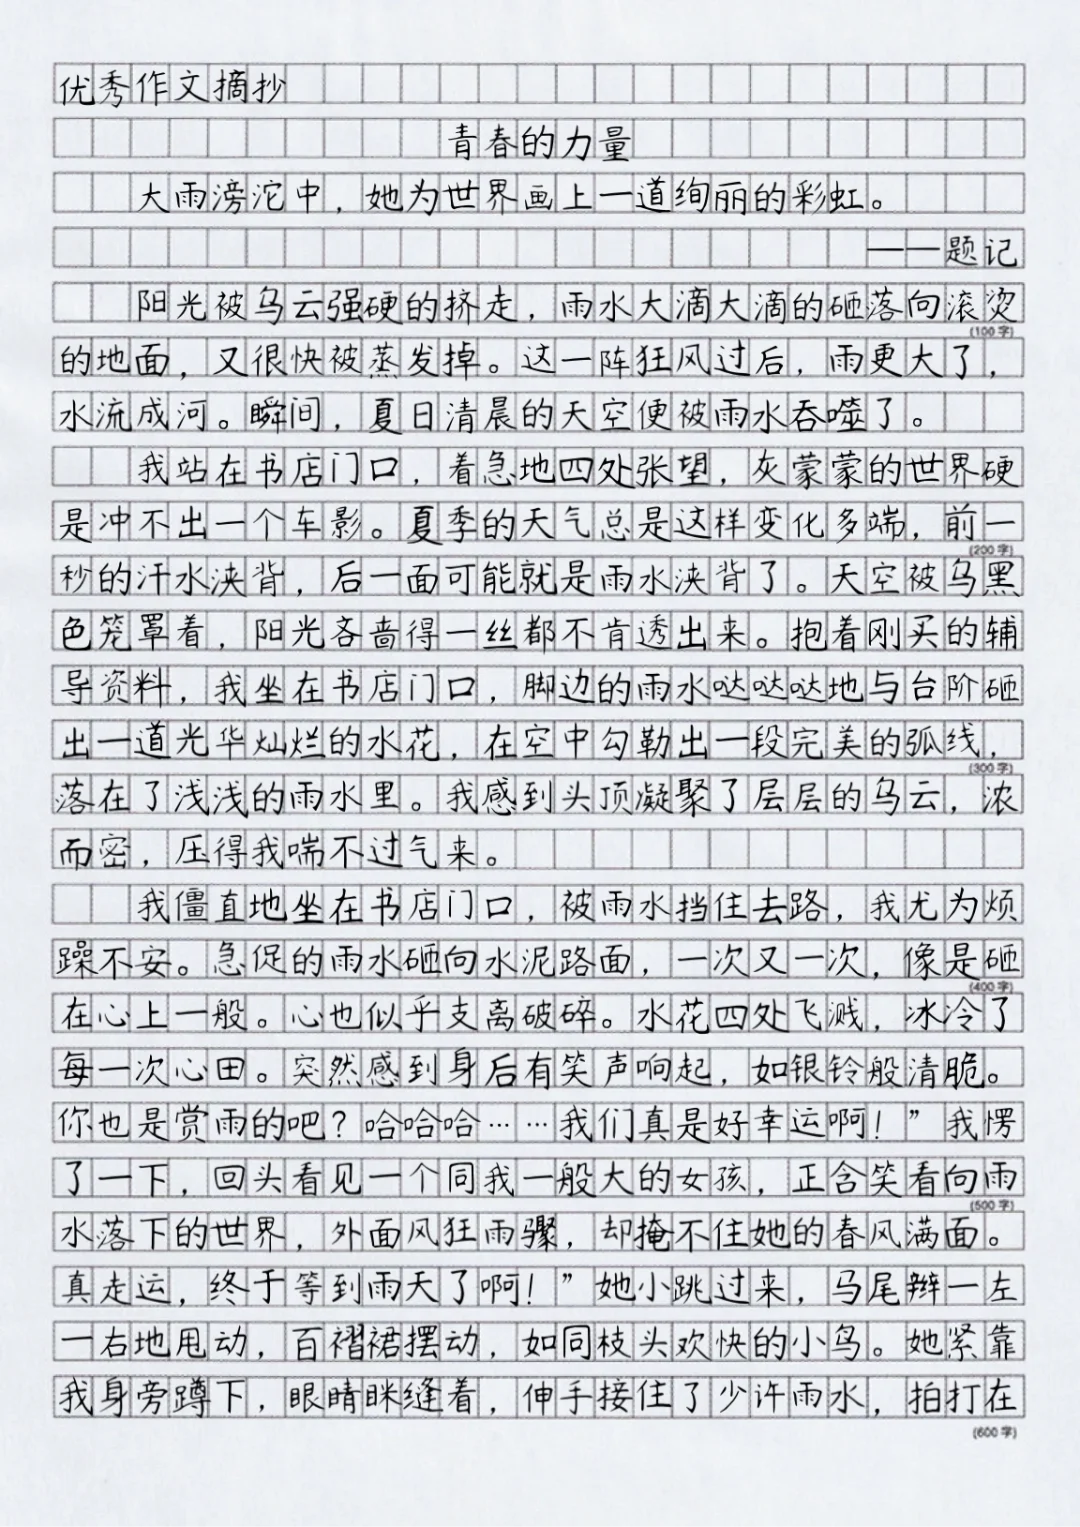 优秀作文摘抄
青春的力量
大雨滂沱中，她为世界画上一道绚丽的彩虹。
——题记
阳光被乌云强硬的挤走，雨水大滴大滴的砸落向滚烫
(100字)
的地面，又很快被蒸发掉。这一阵狂风过后，雨更大了，
水流成河。瞬间，夏日清晨的天空便被雨水吞噬了。
我站在书店门口，着急地四处张望，灰蒙蒙的世界硬
是冲不出一个车影。夏季的天气总是这样变化多端，前一
(200字)
秒的汗水浃背，后一面可能就是雨水浃背了。天空被乌黑
色笼罩着，阳光吝啬得一丝都不肯透出来。抱着刚买的辅
导资料，我坐在书店门口，脚边的雨水哒哒哒地与台阶砸
出一道光华灿烂的水花，在空中勾勒出一段完美的弧线，
(300字)
落在了浅浅的雨水里。我感到头顶凝聚了层层的乌云，浓
而密，压得我喘不过气来。
我僵直地坐在书店门口，被雨水挡住去路，我尤为烦
躁不安。急促的雨水砸向水泥路面，一次又一次，像是砸
(400字)
在心上一般。心也似乎支离破碎。水花四处飞溅，冰冷了
每一次心田。突然感到身后有笑声响起，如银铃般清脆。
你也是赏雨的吧？哈哈哈……我们真是好幸运啊！”我愣
了一下，回头看见一个同我一般大的女孩，正含笑看向雨
(500字)
水落下的世界，外面风狂雨骤，却掩不住她的春风满面。
真走运，终于等到雨天了啊！”她小跳过来，马尾辫一左
一右地甩动，百褶裙摆动，如同枝头欢快的小鸟。她紧靠
我身旁蹲下，眼睛眯缝着，伸手接住了少许雨水，拍打在
(600字)